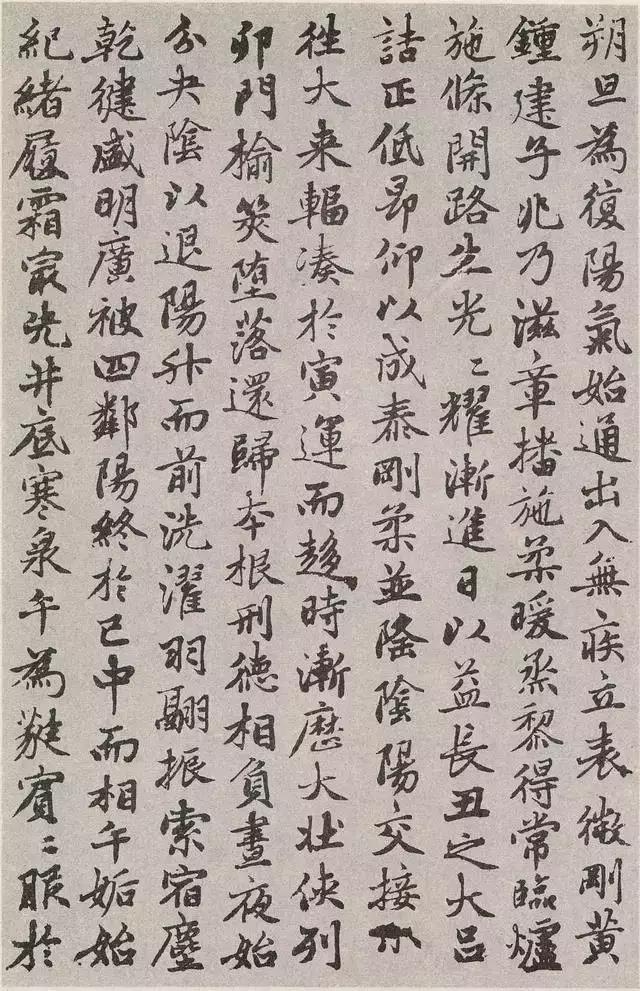 朔旦為復陽氣始通出入無疾立表微剛黃
鍾建子兆乃滋章播施柔暖烝黎得常臨爐
施條開路生光〻耀漸進日以益長丑之大呂
詰正低昂仰以成泰剛柔並隆陰陽交接小
往大来輻湊於寅運而趍時漸歷大壯俠列
卯門榆莢堕落還歸本根刑德相負晝夜始
分央陰以退陽升而前洗濯羽翮振索宿塵
乾健盛明廣被四鄰陽終於巳中而相午姤始
紀緒履霜最先井底寒泉午為蕤賓〻服於